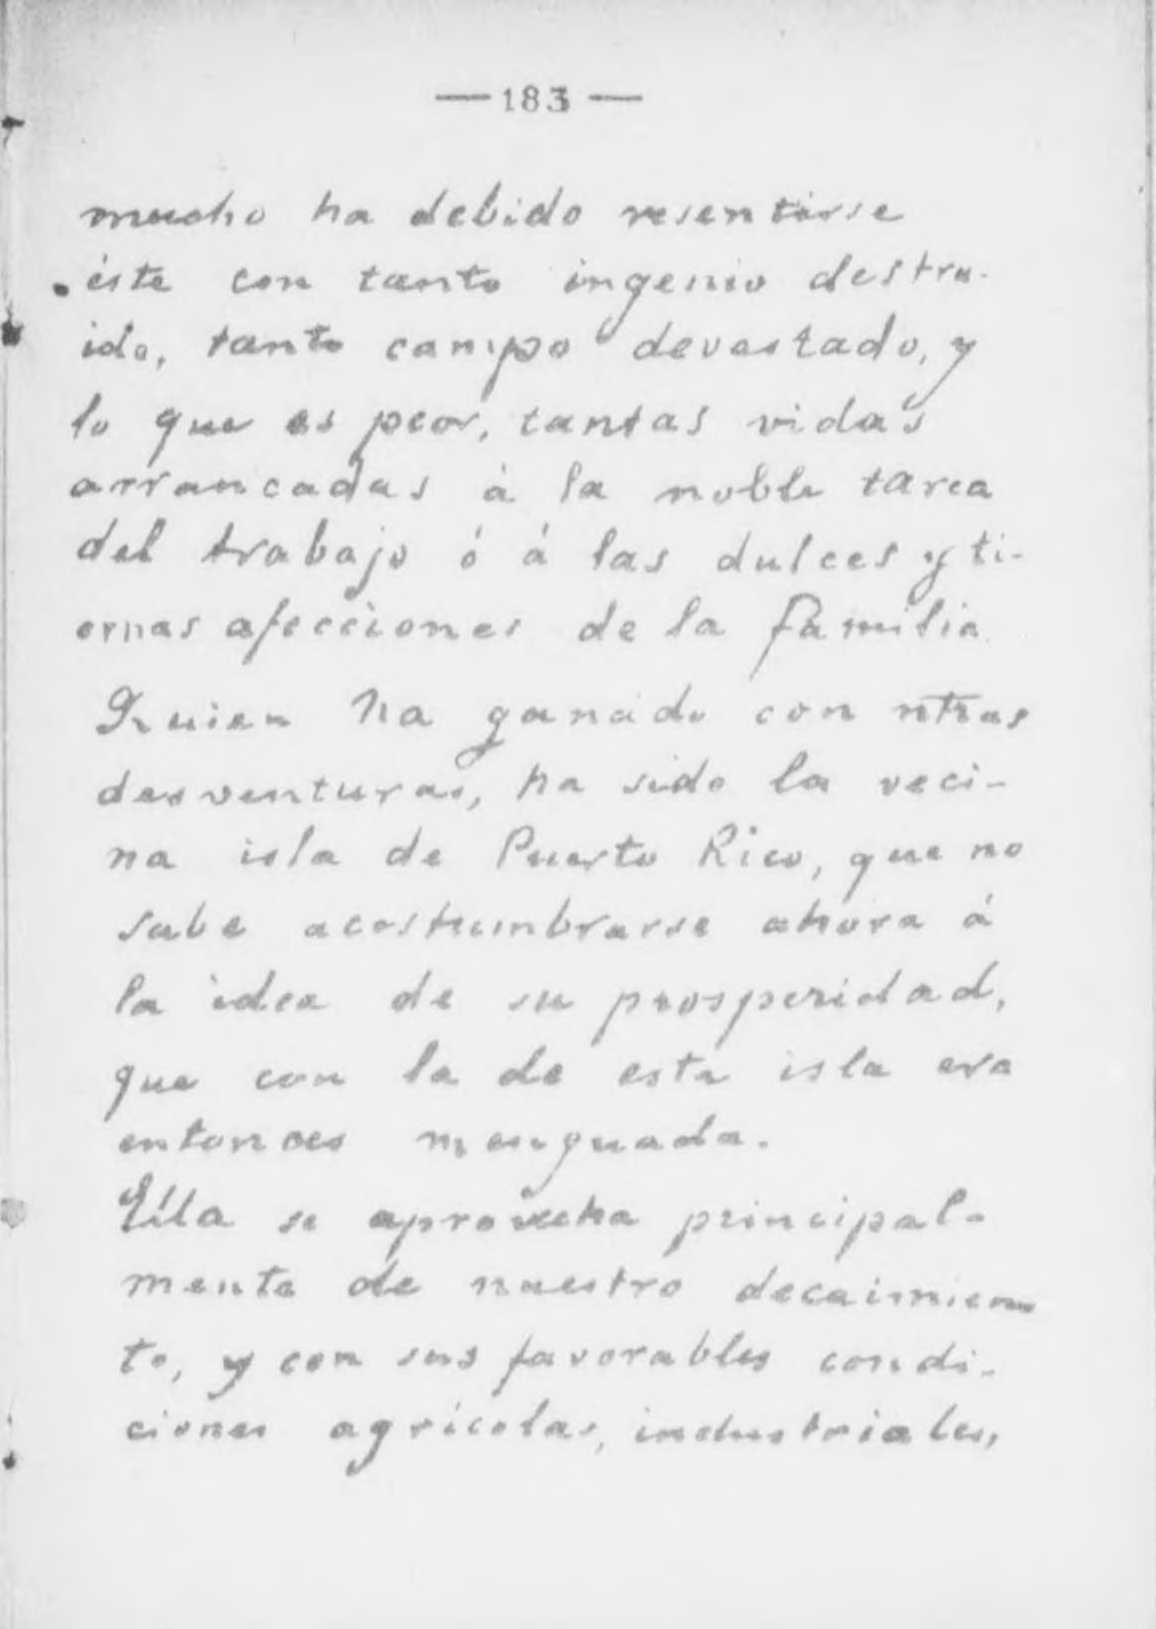 — 183 —
mucho ha debido resentirse
éste con tanto ingenio destru-
ido, tanto campo devastado, y
lo que es peor, tantas vidas
arrancadas á la noble tarea
del trabajo ó á las dulces y ti-
ernas afecciones de la familia.
Quien ha ganado con ntras
desventuras, ha sido la veci-
na isla de Puerto Rico, que no
sabe acostumbrarse ahora á
la idea de su prosperidad,
que con la de esta isla era
entonces menguada.
Ella se aprovecha principal-
mente de nuestro decaimien
to, y con sus favorables condi-
ciones agrícolas, industriales,